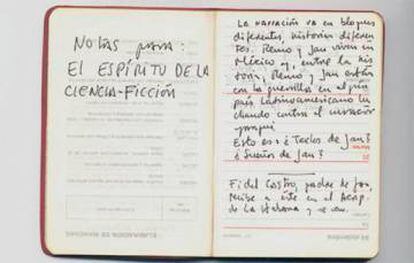 NOTAS para:
EL ESPÍRITU DE LA
CIENCIA-FICCIÓN
La narración va en bloques
diferentes, historias diferen
tes. Remo y Jan viven en
México y, entre la his
toria, Remo y Jan están
con la guerrilla en algún
país latinoamericano lu
chando contra el invasor
yanqui
Esto es: ¿Textos de Jan?
¿Sueños de Jan?
Fidel Castro, padre de Jan,
recibe a este en el Aerop.
de La Habana y se van.